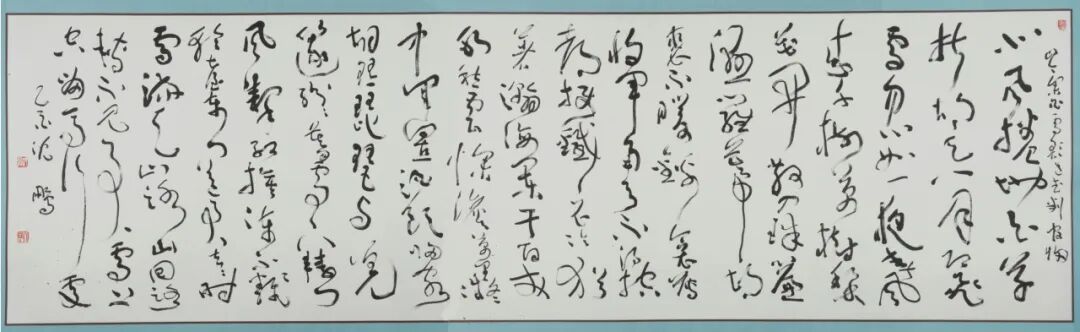 岑參白雪歌送武判官歸
北風捲地白草
折胡天八月即飛
雪忽如一夜春風
来千樹萬樹梨
花開散入珠簾
濕羅幕狐
裘不暖錦衾薄
将軍角弓不得控
都護鐵衣冷猶
著瀚海闌干百丈
冰愁雲惨淡萬里凝
中軍置酒飲歸客
胡琴琵琶与羌
笛紛紛暮雪下轅門
風掣紅旗凍不翻
輪臺東門送君去去時
雪満天山路山回路
轉不見君雪上
空留馬行處
乙亥沈鵬